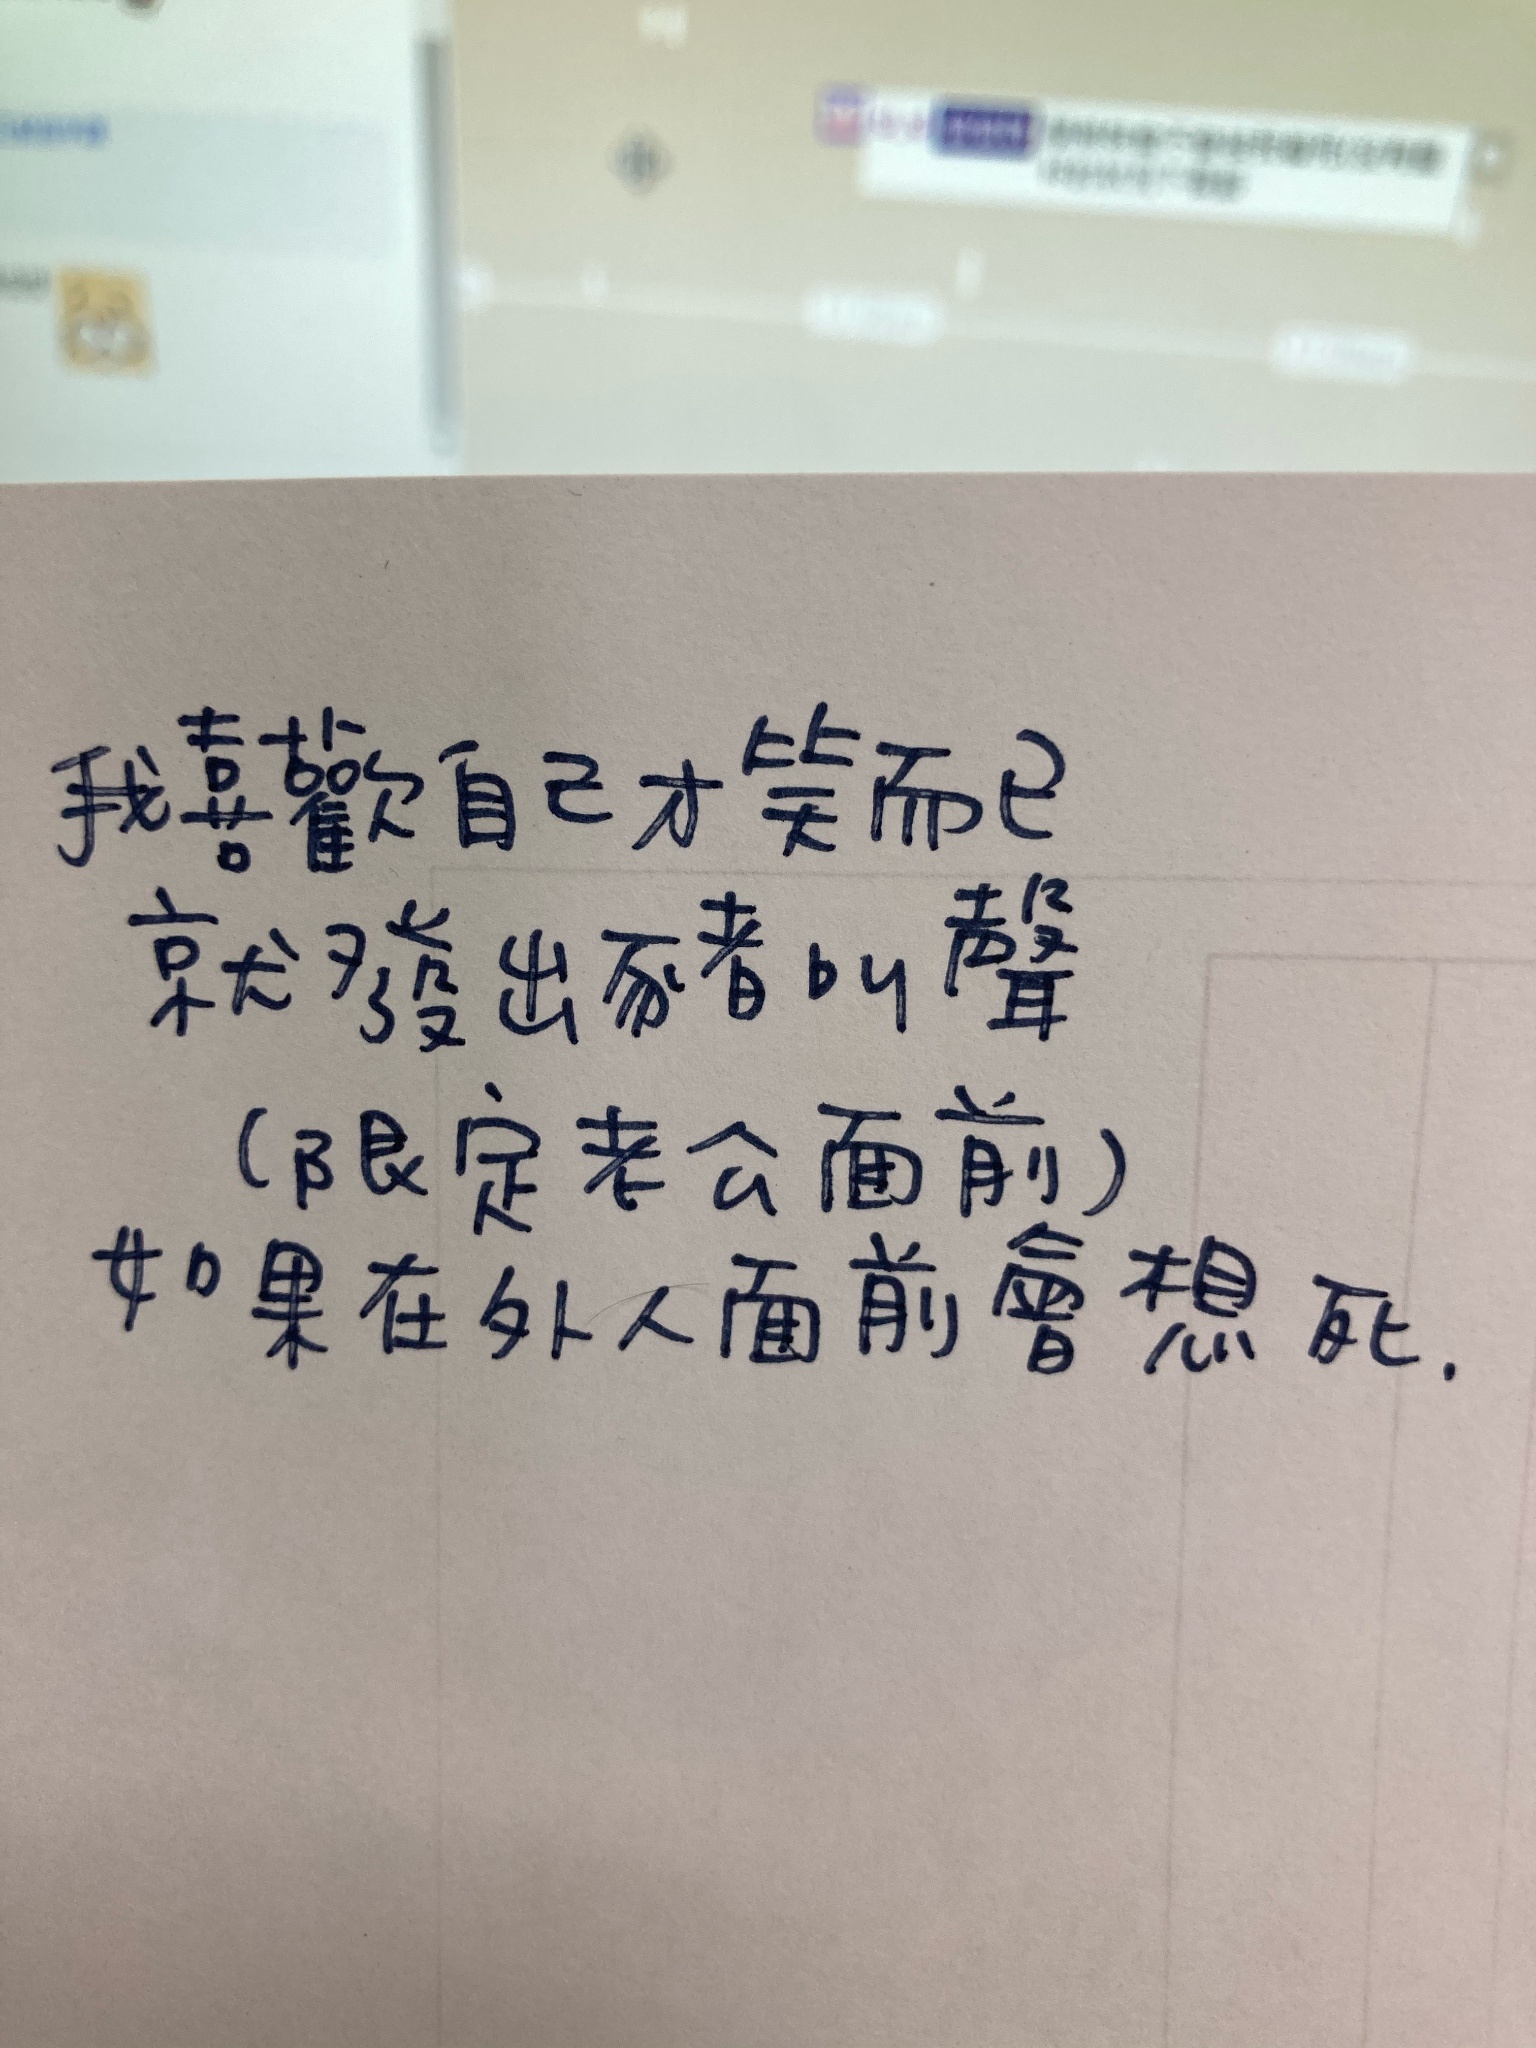 我喜歡自己才笑而已
就發出豬叫聲
(限定老公面前)
如果在外人面前會想死.